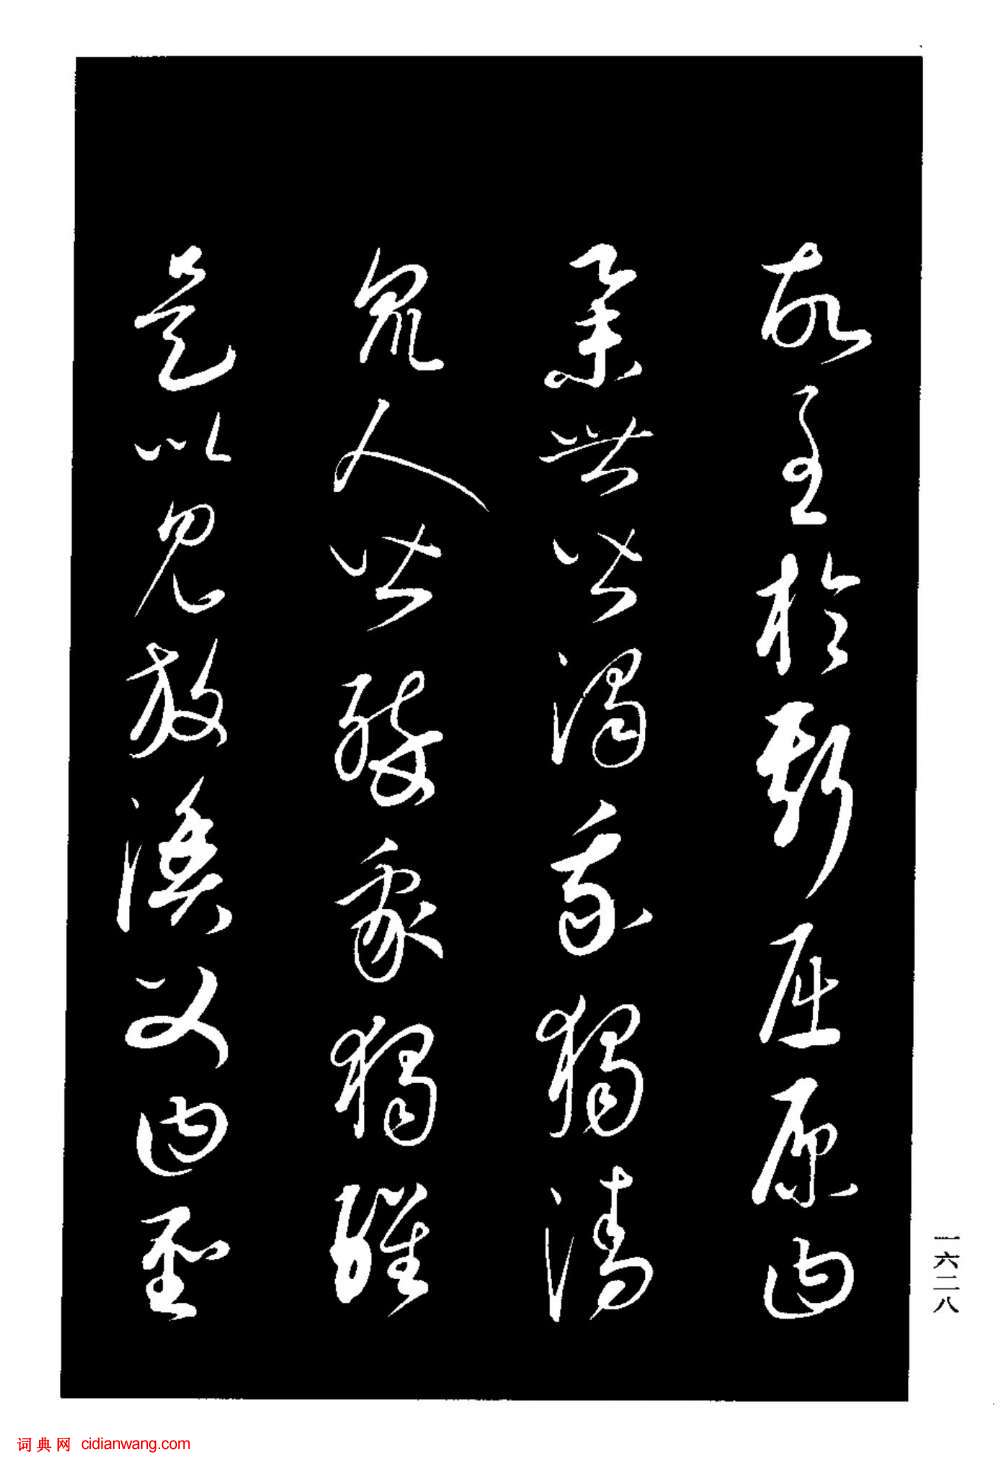 故至於斯屈原曰
舉世皆濁我獨清
眾人皆醉我獨醒
是以見放漁父曰聖
一六二八
词典网 cidianwang.com